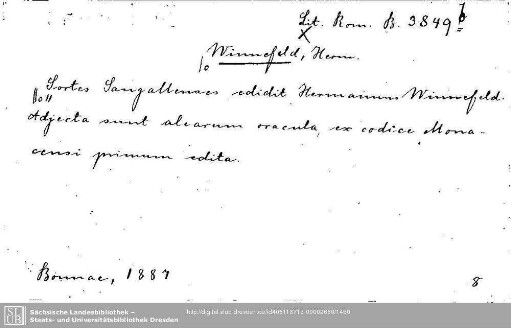 Lit. Rom. B. 3849 b
Winnefeld, Herm.
Sortes Sangallenses edidit Hermannus Winnefeld.
Adjecta sunt alearum oracula, ex codice Mona-
censi primum edita.
Bonnae, 1887
8
Sächsische Landesbibliothek –
Staats- und Universitätsbibliothek Dresden